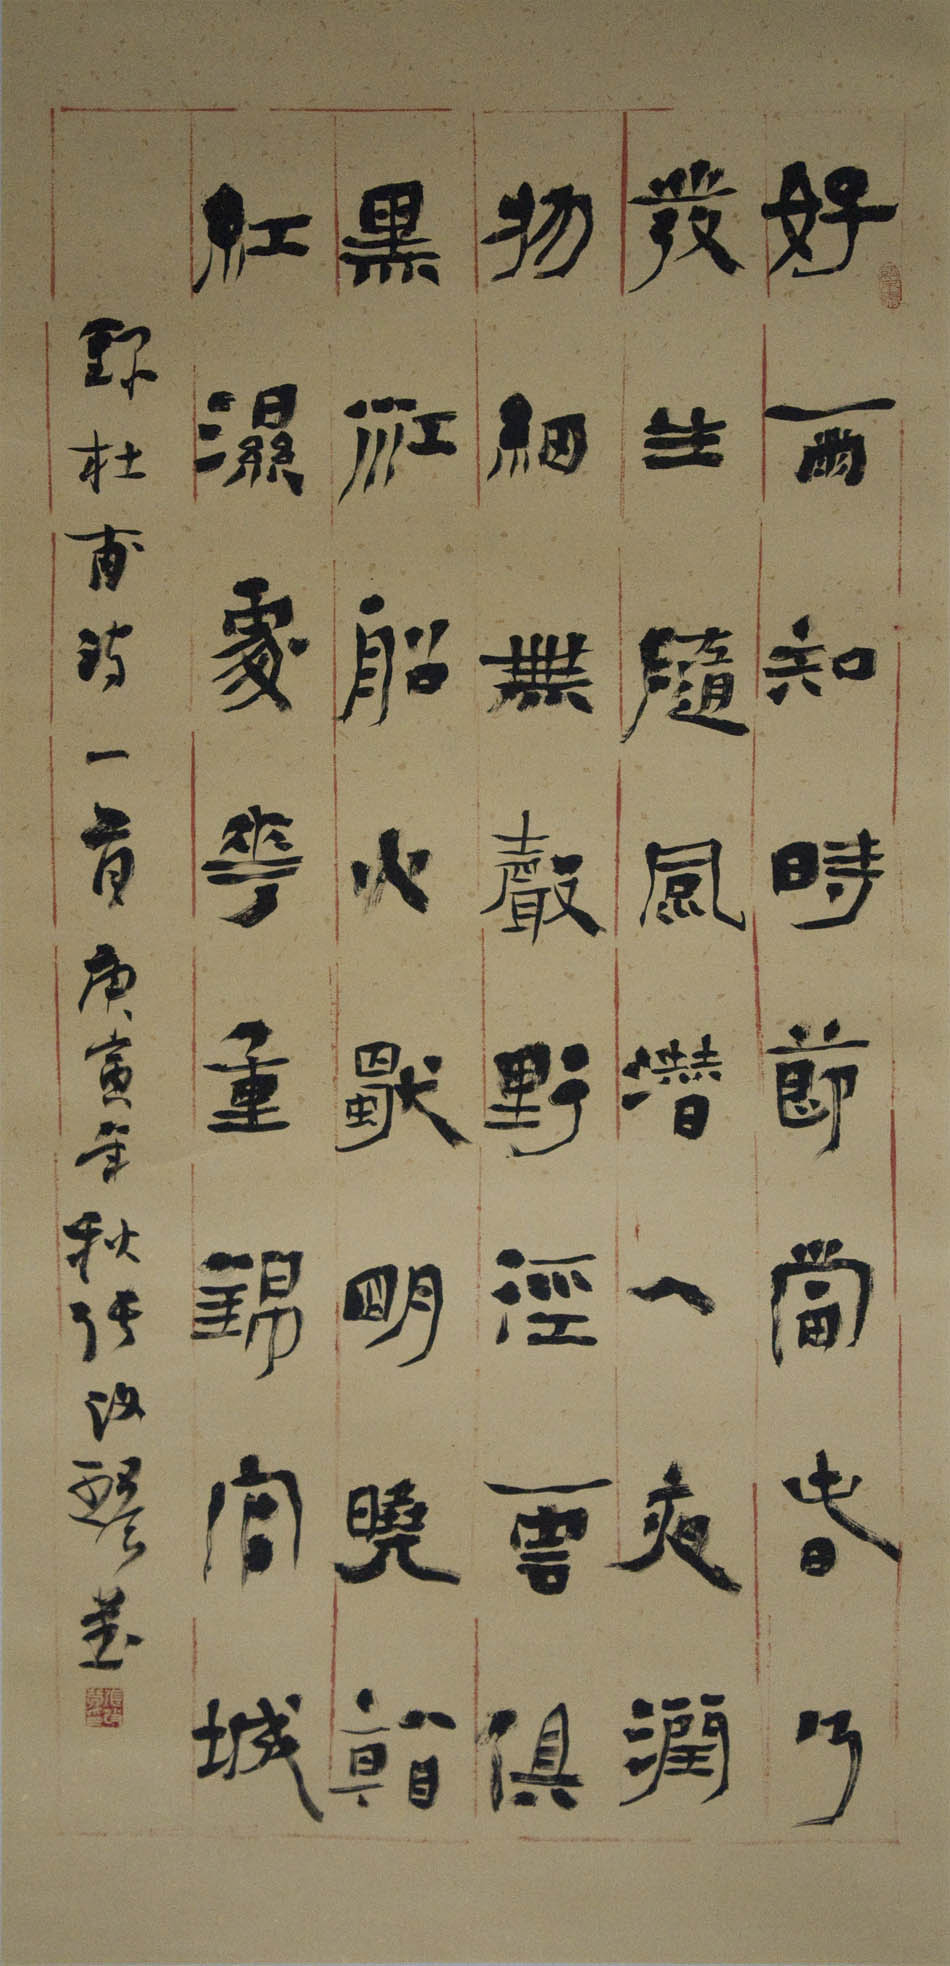 好雨知時節當春乃
發生隨風潛入夜潤
物細無聲野徑雲俱
黑江船火獨明曉看
紅濕處花重錦官城
録杜甫詩一首庚寅年秋張改琴